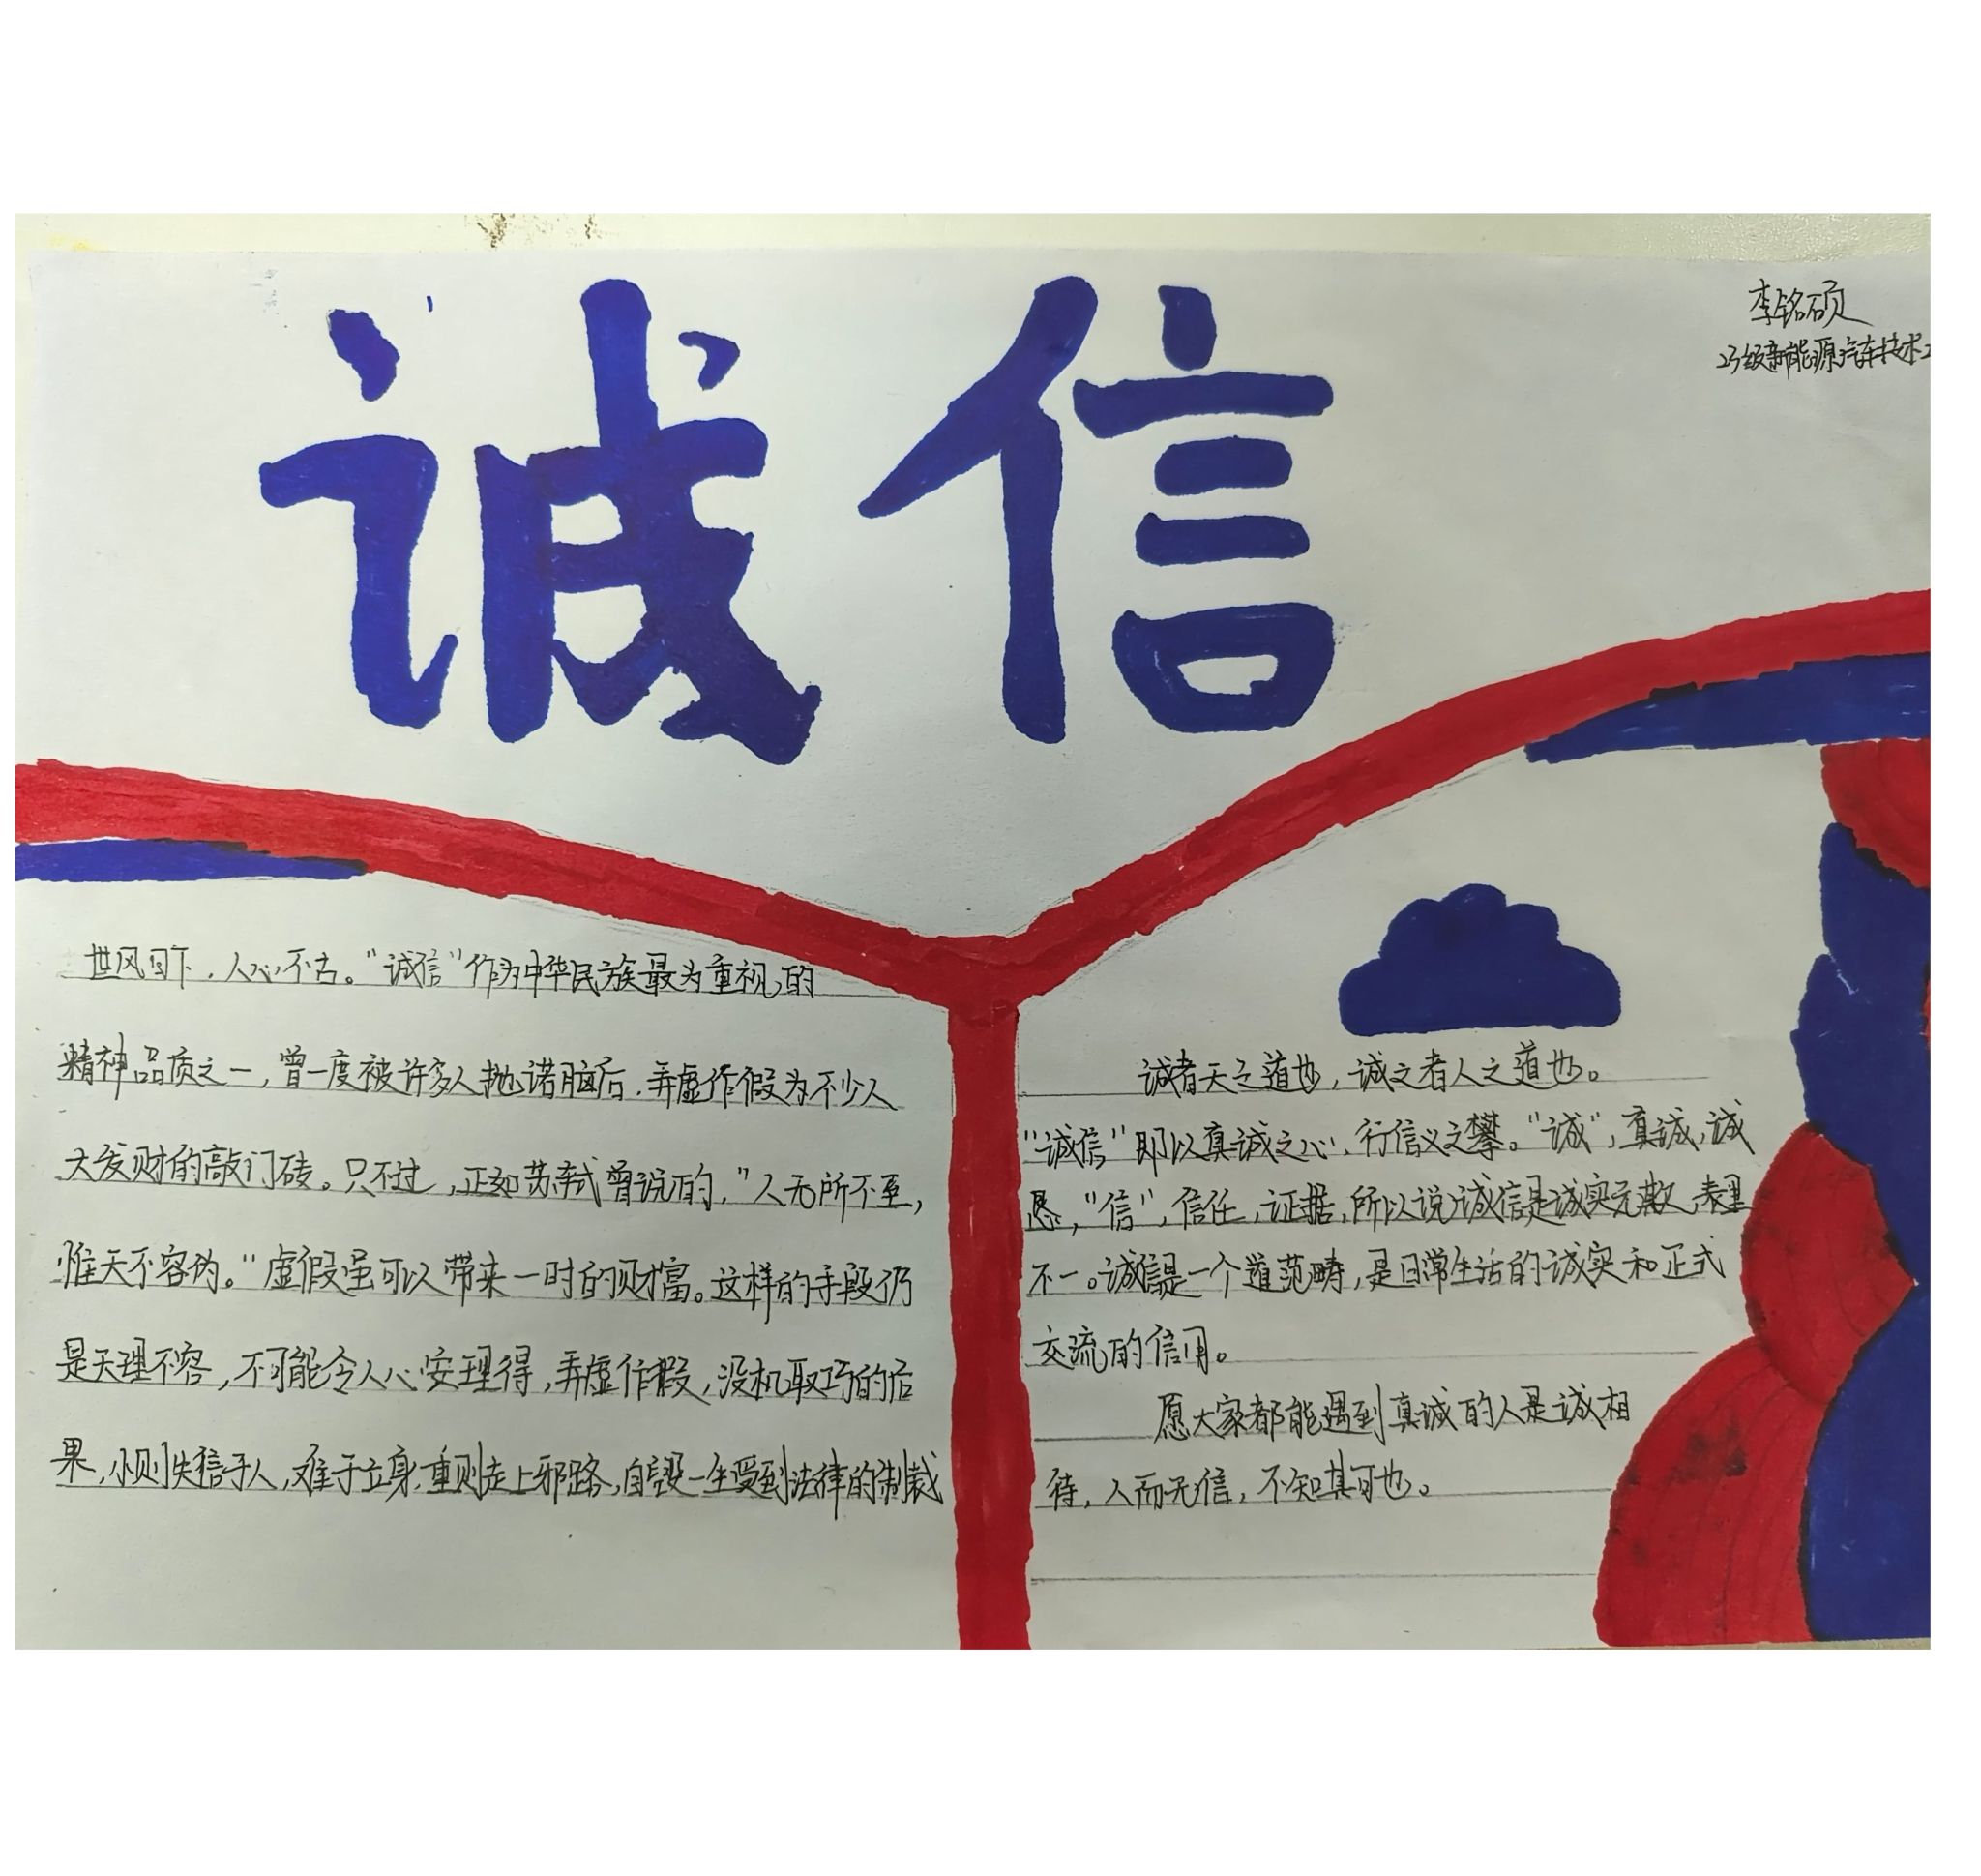 诚信
李铭硕
23级新能源汽车技术2
世风日下，人心不古。“诚信”作为中华民族最为重视的
精神品质之一，曾一度被许多人抛诺脑后，弄虚作假为不少人
大发财的敲门砖。只不过，正如苏轼曾说的，”人无所不至，
惟天不容伪。“虚假虽可以带来一时的财富。这样的手段仍
是天理不容，不可能令人心安理得，弄虚作假，没机取巧的后
果，小则失信于人，难于立身，重则走上邪路，自毁一生受到法律的制裁
诚者天之道也，诚之者人之道也。
“诚信”即以真诚之心，行信义之攀。“诚”，真诚，诚
恳，“信”，信任，证据，所以说诚信是诚实无欺，表里
不一。诚信是一个道范畴，是日常生活的诚实和正式
交流的信用。
愿大家都能遇到真诚的人是诚相
待，人而无信，不知其可也。